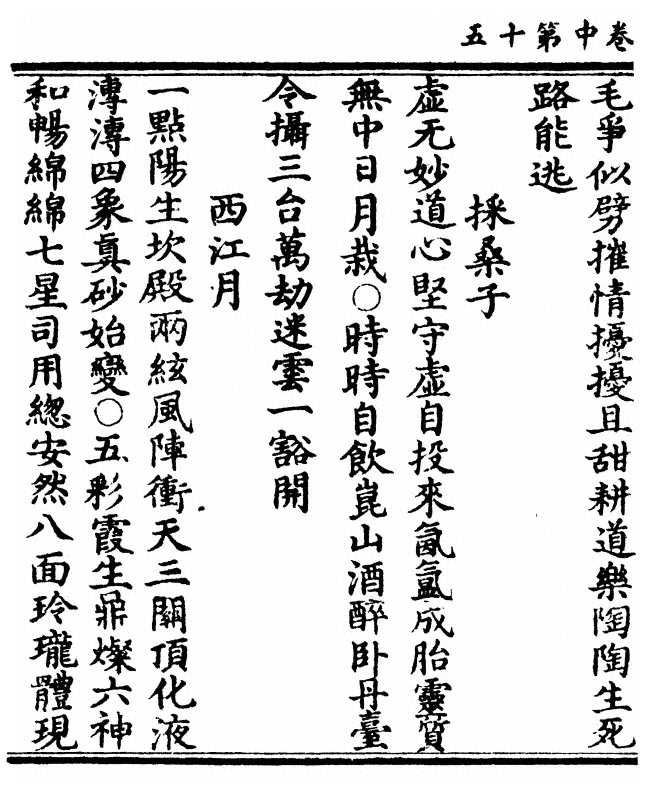 卷中第十五
毛爭似劈摧情擾擾且甜耕道樂陶陶生死
路能逃
採桑子
虛无妙道心堅守虛自投來氤氳成胎靈質
無中日月栽○時時自飲崑山酒醉卧丹臺
令攝三台萬劫迷雲一豁開
西江月
一點陽生坎殿兩絃風陣衝天三關頂化液
漙漙四象真砂始變○五彩霞生鼎燦六神
和暢綿綿七星司用緫安然八面玲瓏體現